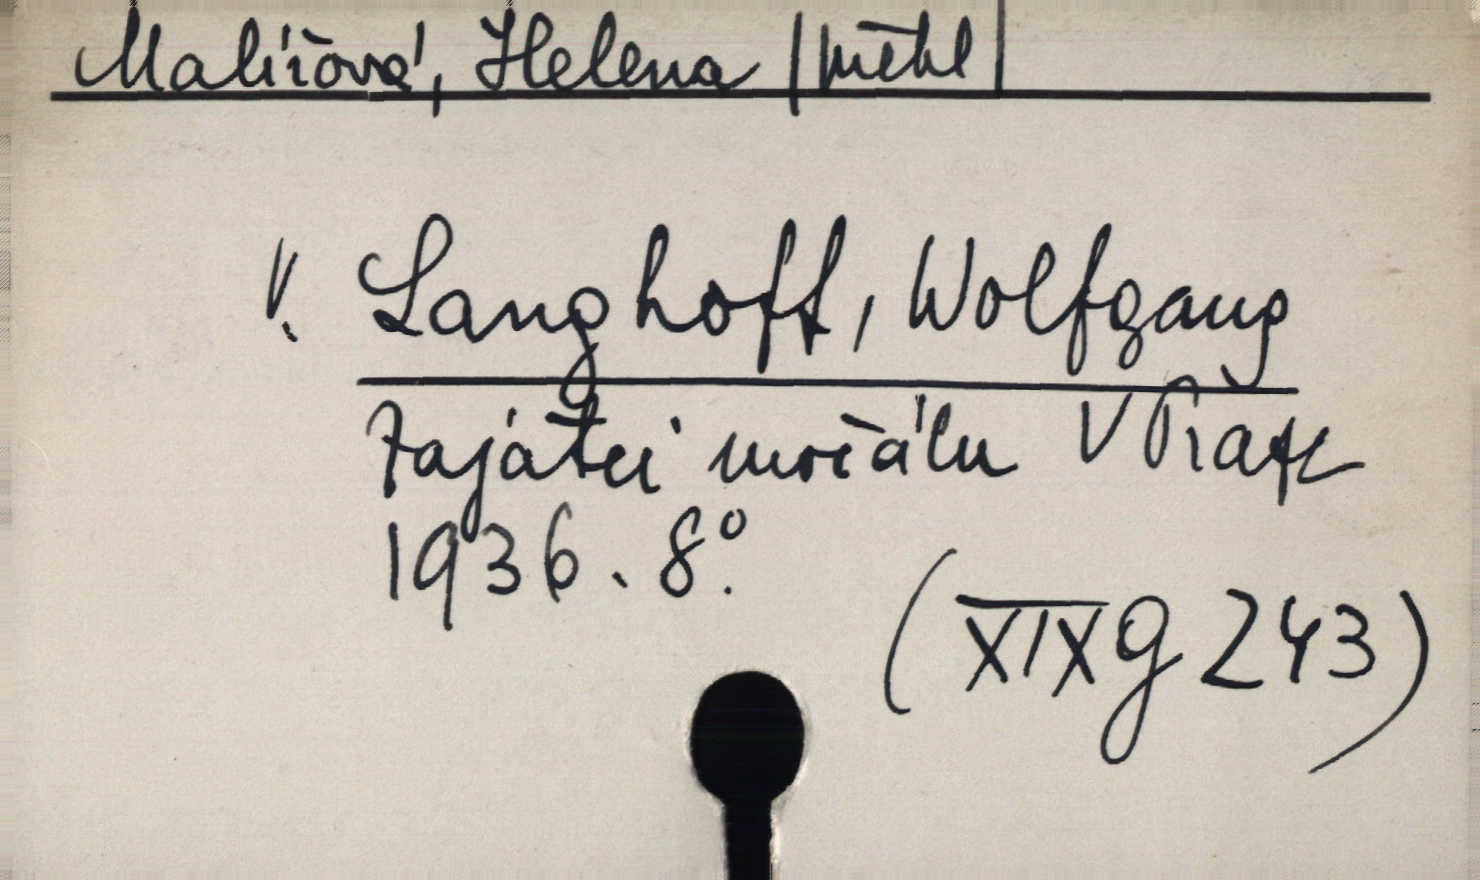 Malířová, Helena |překl|
V. Langhoff, Wolfgang
Zajatci močálu V Praze
1936. 8°.
(XIX g 243)